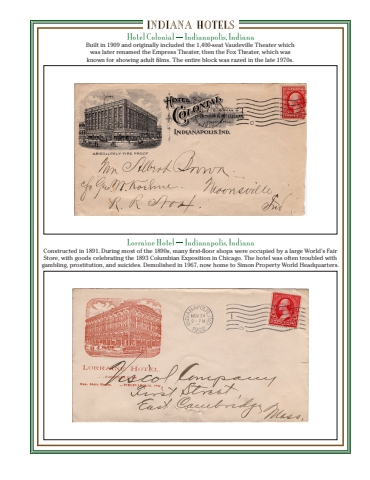 INDIANA HOTELS
Hotel Colonial — Indianapolis, Indiana
Built in 1909 and originally included the 1,400-seat Vaudeville Theater which
was later renamed the Empress Theater, then the Fox Theater, which was
known for showing adult films. The entire block was razed in the late 1970s.
HOTEL
COLONIAL
INDIANAPOLIS, IND.
ABSOLUTELY FIRE PROOF
Mr Albert Brown
c/o
Moorsville
R. R.
Ind
Lorraine Hotel — Indianapolis, Indiana
Constructed in 1891. During most of the 1890s, many first-floor shops were occupied by a large World's Fair
Store, with goods celebrating the 1893 Columbian Exposition in Chicago. The hotel was often troubled with
gambling, prostitution, and suicides. Demolished in 1967, now home to Simon Property World Headquarters.
INDIANAPOLIS
LORRAINE HOTEL
Vescol Company
First Street
East Cambridge
Mass.